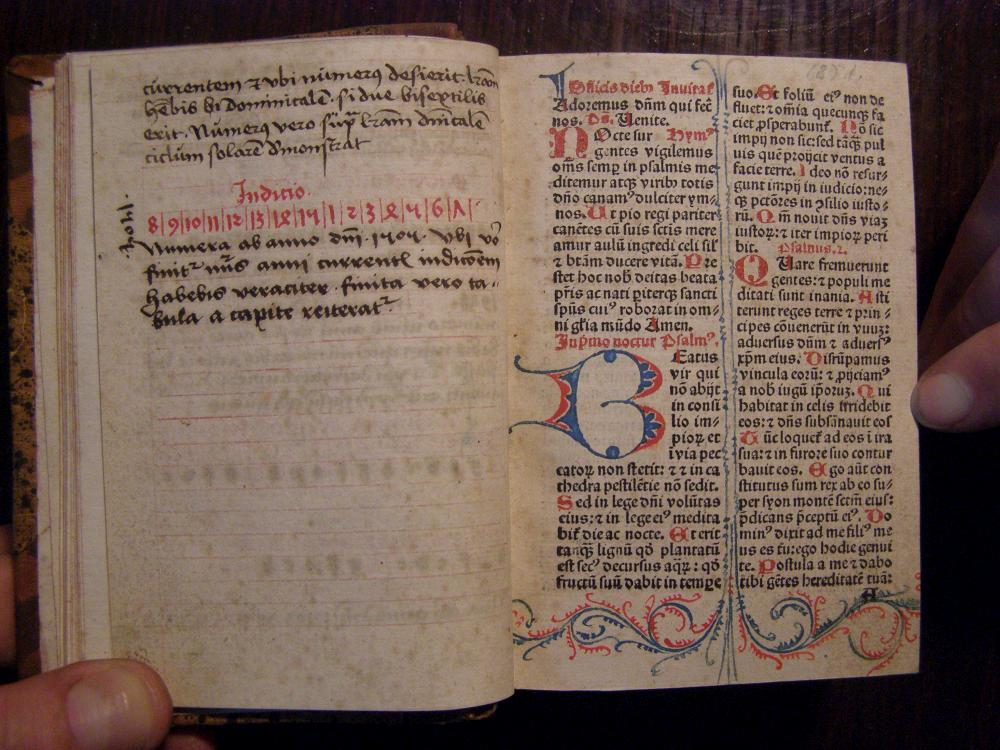 currentem ⁊ vbi numerꝰ desierit lr̄am
hēbis bi dominicalē · si due bisextilis
exit. Numerꝰ vero sup̄ lr̄am dn̄icalē
ciclum solarē demonstrat
Indictio.
8 | 9 | 10 | 11 | 12 | 13 | 14 | 15 | 1 | 2 | 3 | 4 | 5 | 6 | 7 |
Numera ab anno dn̄i · 1505 · vbi vō
finitᷣ nr̄s anni currentꝭ indicōem
habebis veraciter · finita vero ta-
bula a capite reiteratᷣ
Dn̄icis dieb⁹ Inuitat
Adoremus dn̄m qui fec̄
nos. Ps. Uenite.
Nocte sur Hymꝰ
gentes vigilemus
om̄s semꝑ in psalmis me
ditemur atqꝫ virib⁹ totis
dn̄o canamꝰ dulciter ym-
nos. Ut pio regi pariter
canētes cū suis sctis mere
amur aulū ingredi celi sil̄
⁊ btām ducere vitā. Pre
stet hoc nob̄ deitas beata
pr̄is ac nati ꝑiterqꝫ sancti
spūs cuiꝰ roborat in om-
ni gl̄ia mūdo Amen.
In pͥmo noctur Psalmꝰ.
Beatus
vir qui
nō abijt
in consi
lio im-
pioꝝ et
i via pec
catoꝝ non stetit: ⁊ ī ca
thedra pestilētie nō sedit.
Sed in lege dn̄i volūtas
eius: ⁊ in lege eiꝰ medita
bit̄ die ac nocte. Et erit
tanqꝫ lignū qd̄ plantatū
est secꝰ decursus aqꝝ: qd̄
fructū suū dabit in tempe
suo. Et foliū eiꝰ non de
fluet: ⁊ om̄ia quecunqꝫ fa
ciet ꝓsperabunt̄. Nō sic
impij non sic: sed tāqꝫ pul
uis quē proijcit ventus a
facie terre. Ideo nō resur-
gunt impij in iudicio: ne-
qꝫ pctōres in ꝯsilio iusto-
rū. Qm̄ nouit dn̄s viaꝫ
iustoꝝ: ⁊ iter impioꝝ peri
bit. Psalmus.2.
Quare fremuerunt
gentes: ⁊ populi me
ditati sunt inania. Asti
terunt reges terre ⁊ prin-
cipes cōuenerūt in vnuꝫ:
aduersus dn̄m ⁊ aduersꝰ
xp̄m eius. Disrūpamus
vincula eorū: ⁊ ꝓijciamꝰ
a nob̄ iugū ip̄oruꝫ. Qui
habitat in celis irridebit
eos: ⁊ dn̄s subsānauit eos
Tūc loquet̄ ad eos ī ira
sua: ⁊ in furore suo contur
bauit eos. Ego aūt con
stitutus sum rex ab eo su-
per syon montē sctm̄ eius:
p̄dicans p̄ceptū eiꝰ. Do
minꝰ dixit ad me filiꝰ me
us es tu: ego hodie genui
te. Postula a me ⁊ dabo
tibi gētes hereditatē tuā:
A